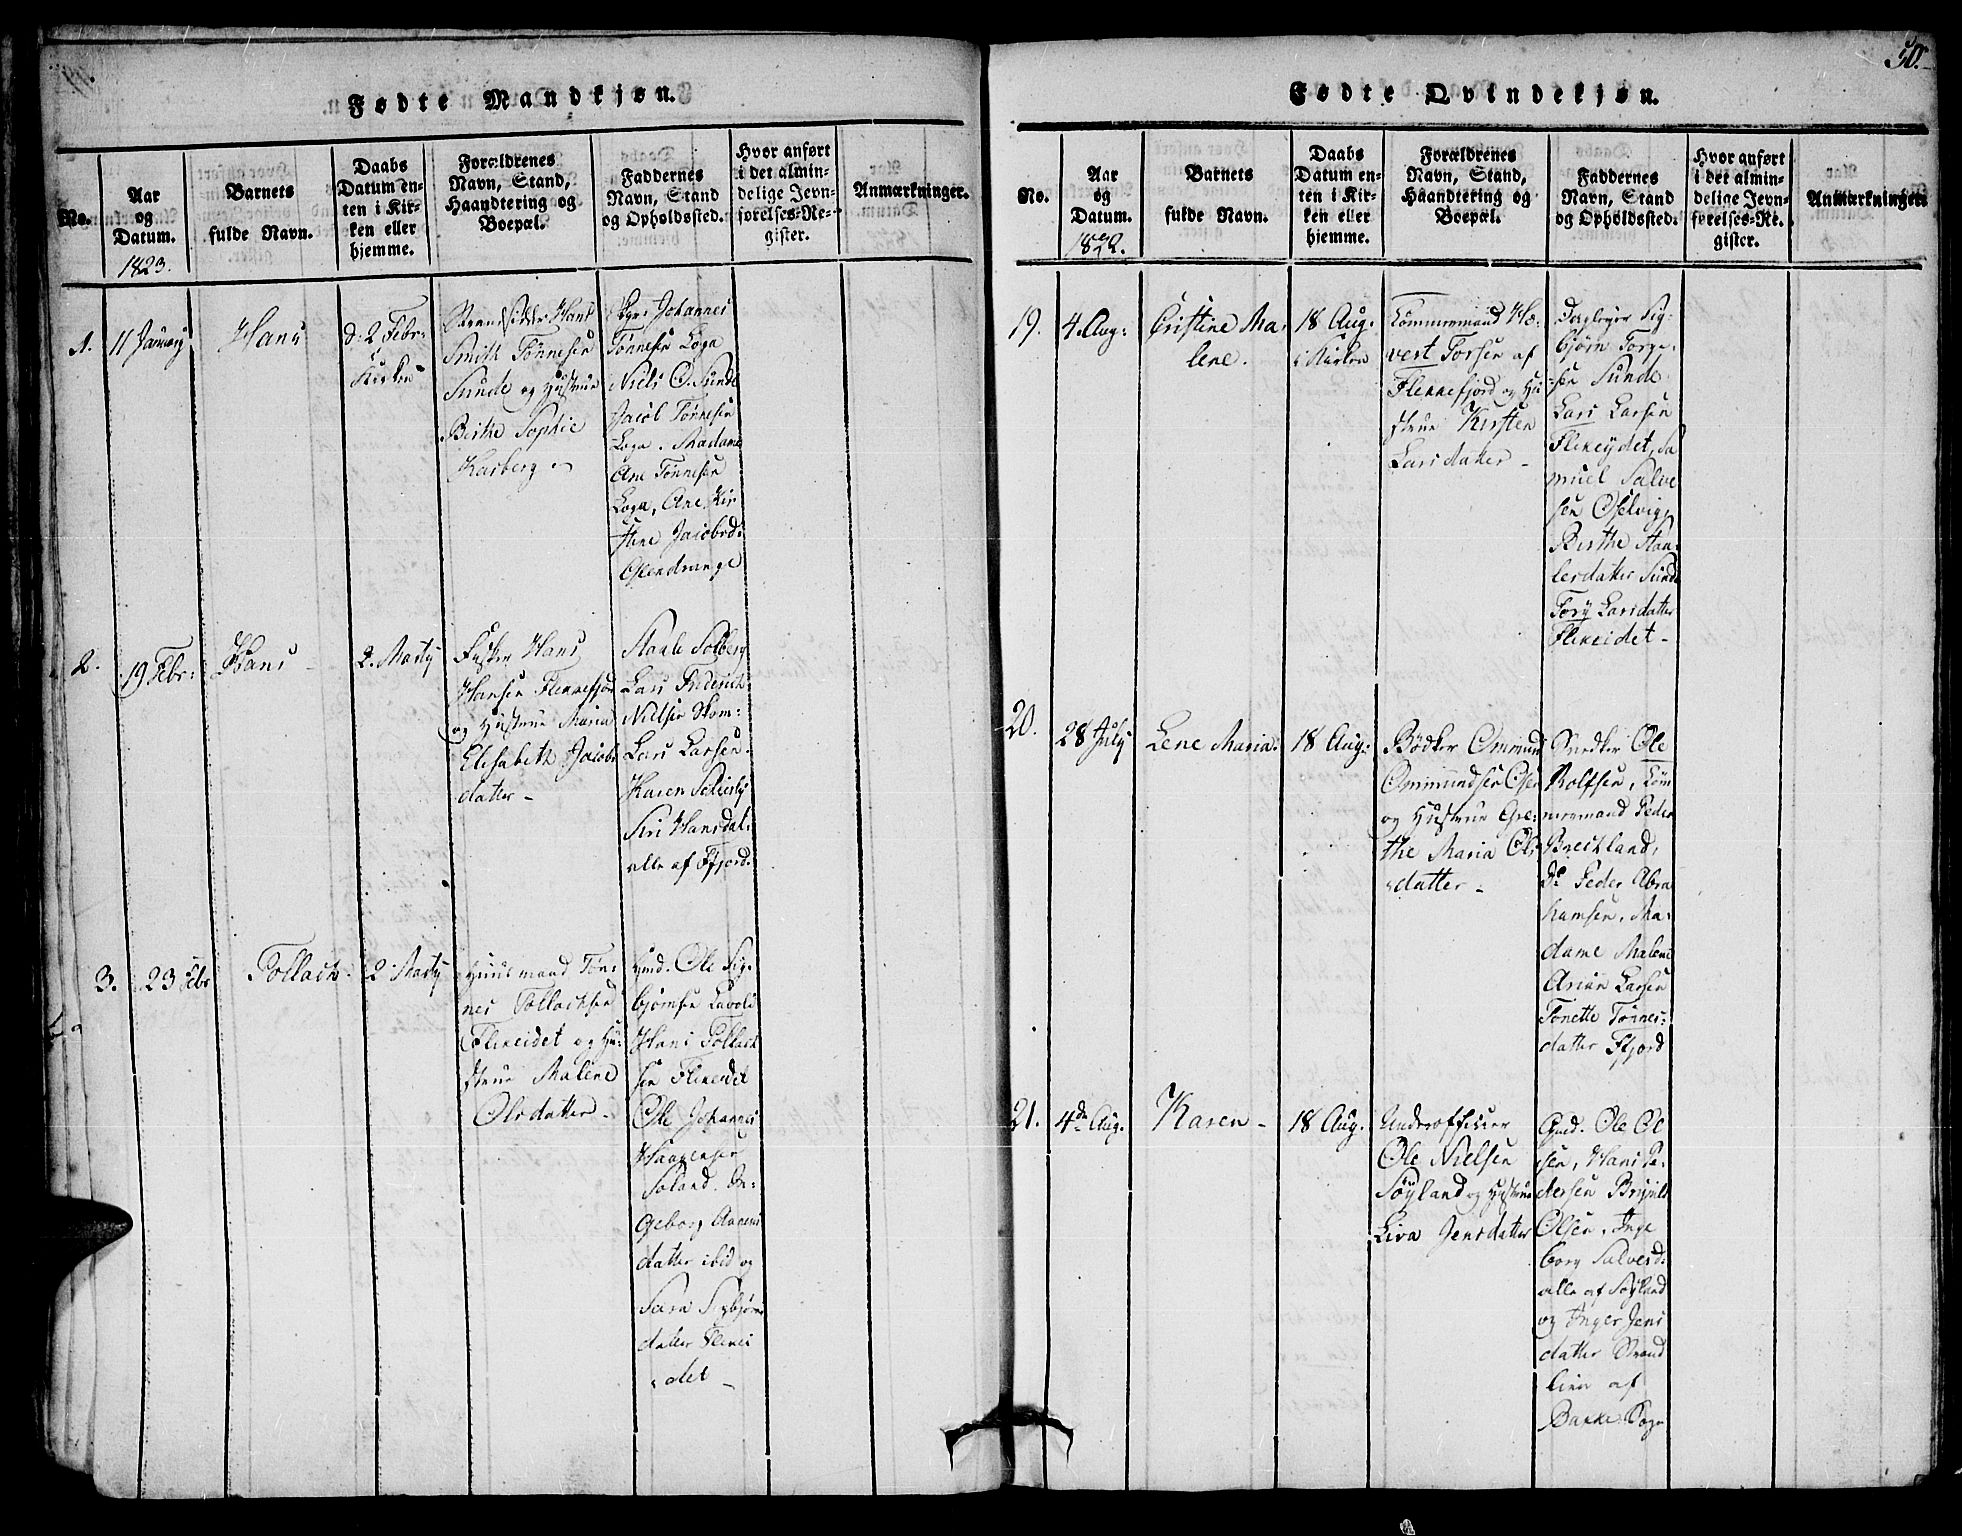 Fødte Mandkjøn.
No.
Aar
og
Datum.
1823.
Barnets
fulde Navn.
Daabs
Datum en-
ten i Kir-
ken eller
hjemme.
Forældrenes
Navn, Stand,
Haandtering og
Boepæl.
Faddernes
Navn, Stand
og Opholdssted.
Hvor anført
i det almin-
delige Jevn-
førelses-Re-
gister.
Anmærkninger.
1.
11 January
Hans
d: 2 Febr:
i
Kirken
Strandsidder Hans
Smith Tönnesen
Sunde og Hustrue
Birthe Sophie
Karberg
Johannes
Tönnesen Loga
Niels O. Sunde
Jacob Tönnesen
Loga. Madame
Ane Tönnesen
Loga, Ane Kir
stene Jacobsd:
Osendrange
2.
19 Febr:
Hans
2. Marty
Fisker Hans
Hansen Flekkefjor
og Hustrue Maria
Elisabeth Jacobs
datter
Staale Solberg
Lars Friderich
Nielsen Skom:
Lars Larsen
Karen
Siri Hansdat:
alle af Ffjord.
3.
23 Febr
Tollack
2 Marty
Huusmand Tön:
nes Tollacksen
Flikeidet og Hu:
strue Malene
Olsdatter
Hmd. Ole Sig:
björnsen
Hans Tollack
sen Flikeidet
Ole Johannes
Haagensen
Soland. In:
geborg Aanens
datter ibid og
Sara Sigbjörns
datter Flikei
det
50.
Fødte Qvindekjøn.
No.
Aar
og
Datum.
1822.
Barnets
fulde Navn.
Daabs
Datum en-
ten i Kir-
ken eller
hjemme.
Forældrenes
Navn, Stand,
Haandtering og
Boepæl.
Faddernes
Navn, Stand
og Opholdssted.
Hvor anført
i det almin-
delige Jevn-
førelses-Re-
gister.
Anmærkninger.
19.
4. Aug:
Cristine Ma:
lene.
18 Aug.
i Kirken
Tömmermand
vert Torsen af
Flekkefjord og Hu
strue Kirsten
Larsdatter
Dagleyer Sig:
björn Torge:
sen Sunde
Lars Larsen
Flikeydet, Sa
muel Salve
sen Oselvig,
Birthe Staa
lesdatter Sunde
Tory Larsdatter
Flikeidet
20.
28 July
Lene Maria.
18 Aug:
Bödker Ommund
Ommundsen Osen
og Hustrue Gre:
the Maria Ols
datter
Snedker Ole
Rolfsen, Töm
mermand Peder
Breckland,
Do Peder Abra
hamsen, Ma:
dame Malene
Arian Larsen
Tonette Tönnes:
datter Ffjord
21.
4de Aug.
Karen
18 Aug.
Underofficier
Ole Nielsen
Söyland og Hustrue
Liva Jensdatter
Gmd. Ole Ol
sen, Hans Pe:
dersen Brynild
Olsen, Inge
borg Salvesd:
alle af Söyland
og Inger Jens
datter Strand
lien af
Bakke Sogn